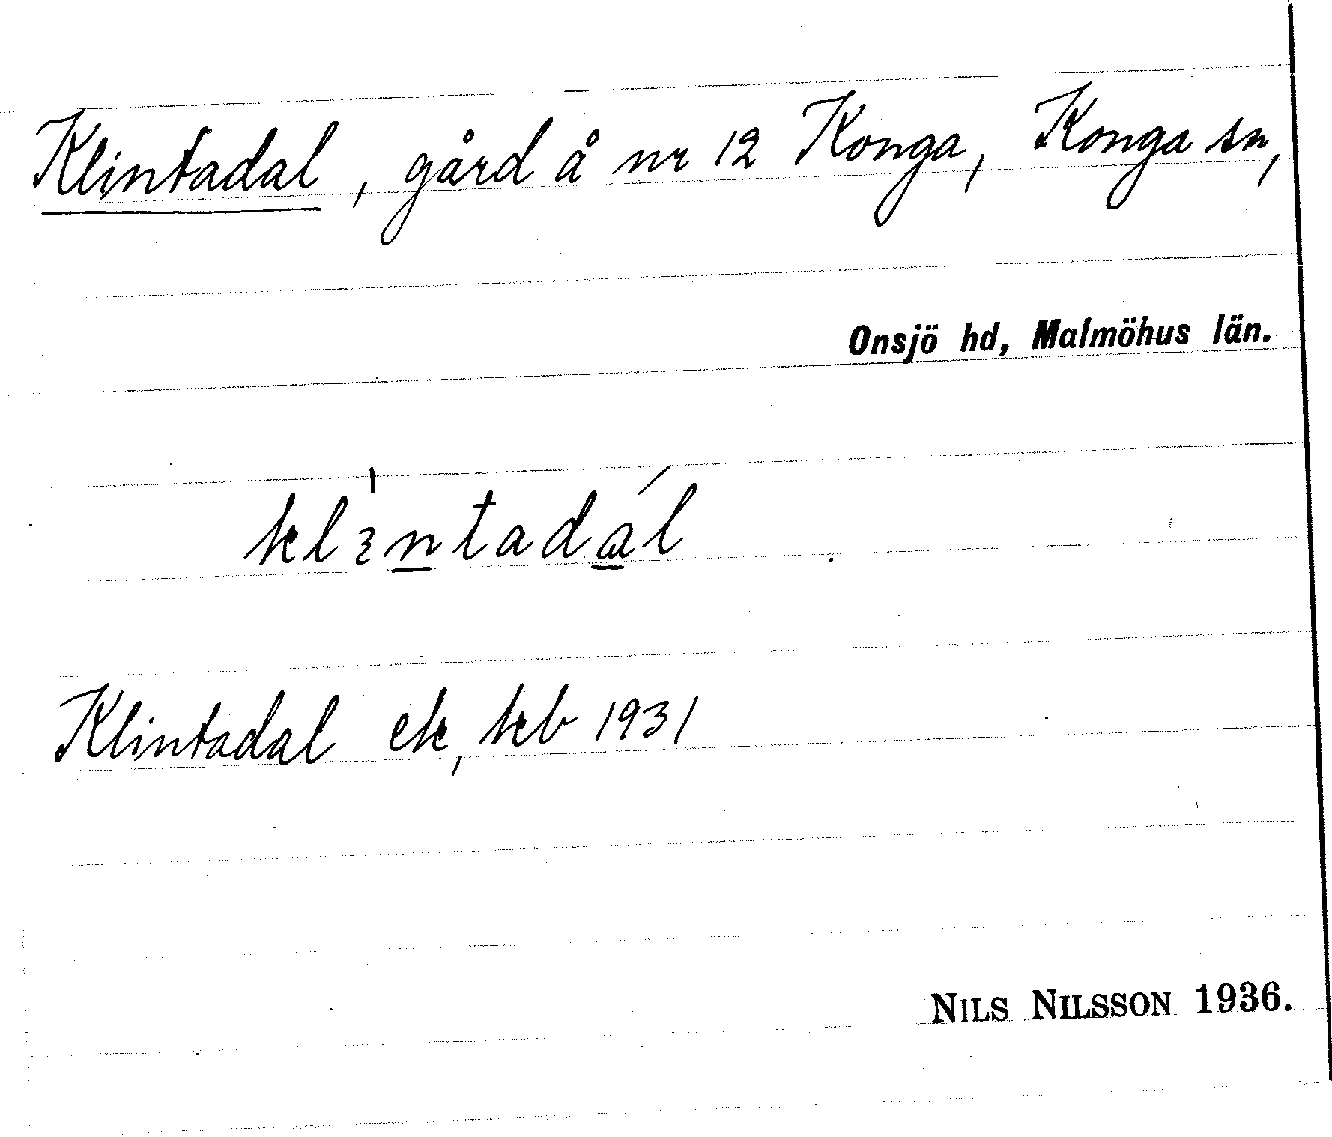 Klintadal, gård å nr 12 Konga, Konga sn,
Onsjö hd, Malmöhus län.
Klintadal ek, kb 1931
NILS NILSSON 1936.